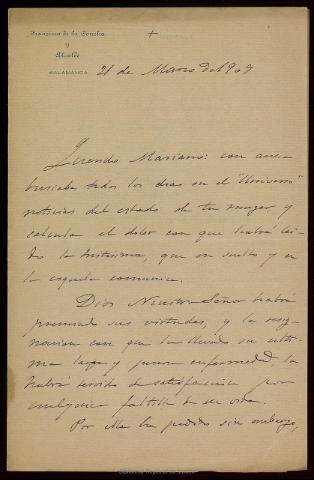 Francisco de la Concha
y
Alcalde
SALAMANCA
+
21 de Marzo de 1909
Querido Mariano: con an
buscaba todos los días en el "Universo"
noticias del estado de tu mujer, y
calcula el dolor con que habré leí-
do la tristísima, que en suelto y en
la esquela comunica.
Dios Nuestro Señor habrá
premiado sus virtudes, y la resig-
nacion con que ha llevado su ulti-
ma larga y penosa enfermedad la
habrá servido de satisfaccion por
cualquier faltilla de su vida.
Por ella he pedido sin embargo,